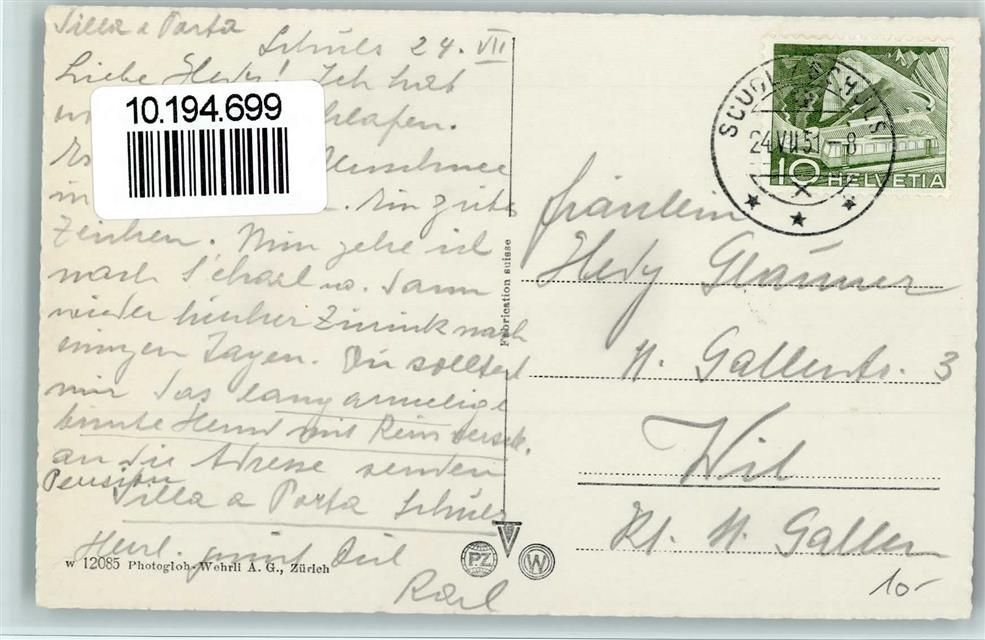 Villa a Porta
Schuls 24. VII
Liebe Hedy! Ich hab
10.194.699
schlafen.
Es Neuschnee
in . Ein gutes
Zeichen. Nun gehe ich
nach S'charl u. dann
wieder hierher zurück nach
einigen Tagen. Du solltest
mir das langärmelige
bunte Hemd mit
an die Adresse senden
Pension
Villa a Porta Schuls
Herzl. grüsst Dich
Karl
W 12085 Photoglob-Wehrli A. G., Zürich
Fabrication suisse
PZ
W
SCUOL / SCHULS
24.VII.51-8
10 HELVETIA
Fräulein
Hedy
St. Gallerstr. 3
Wil
Kt. St. Gallen
10-